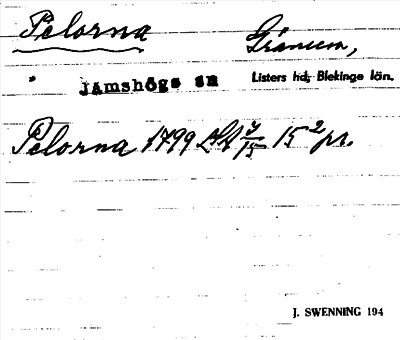 Pelorna Gränum,
Jämshögs sn Listers hd, Blekinge län.
Pelorna 1799 15 2 pr.
J. SWENNING 194